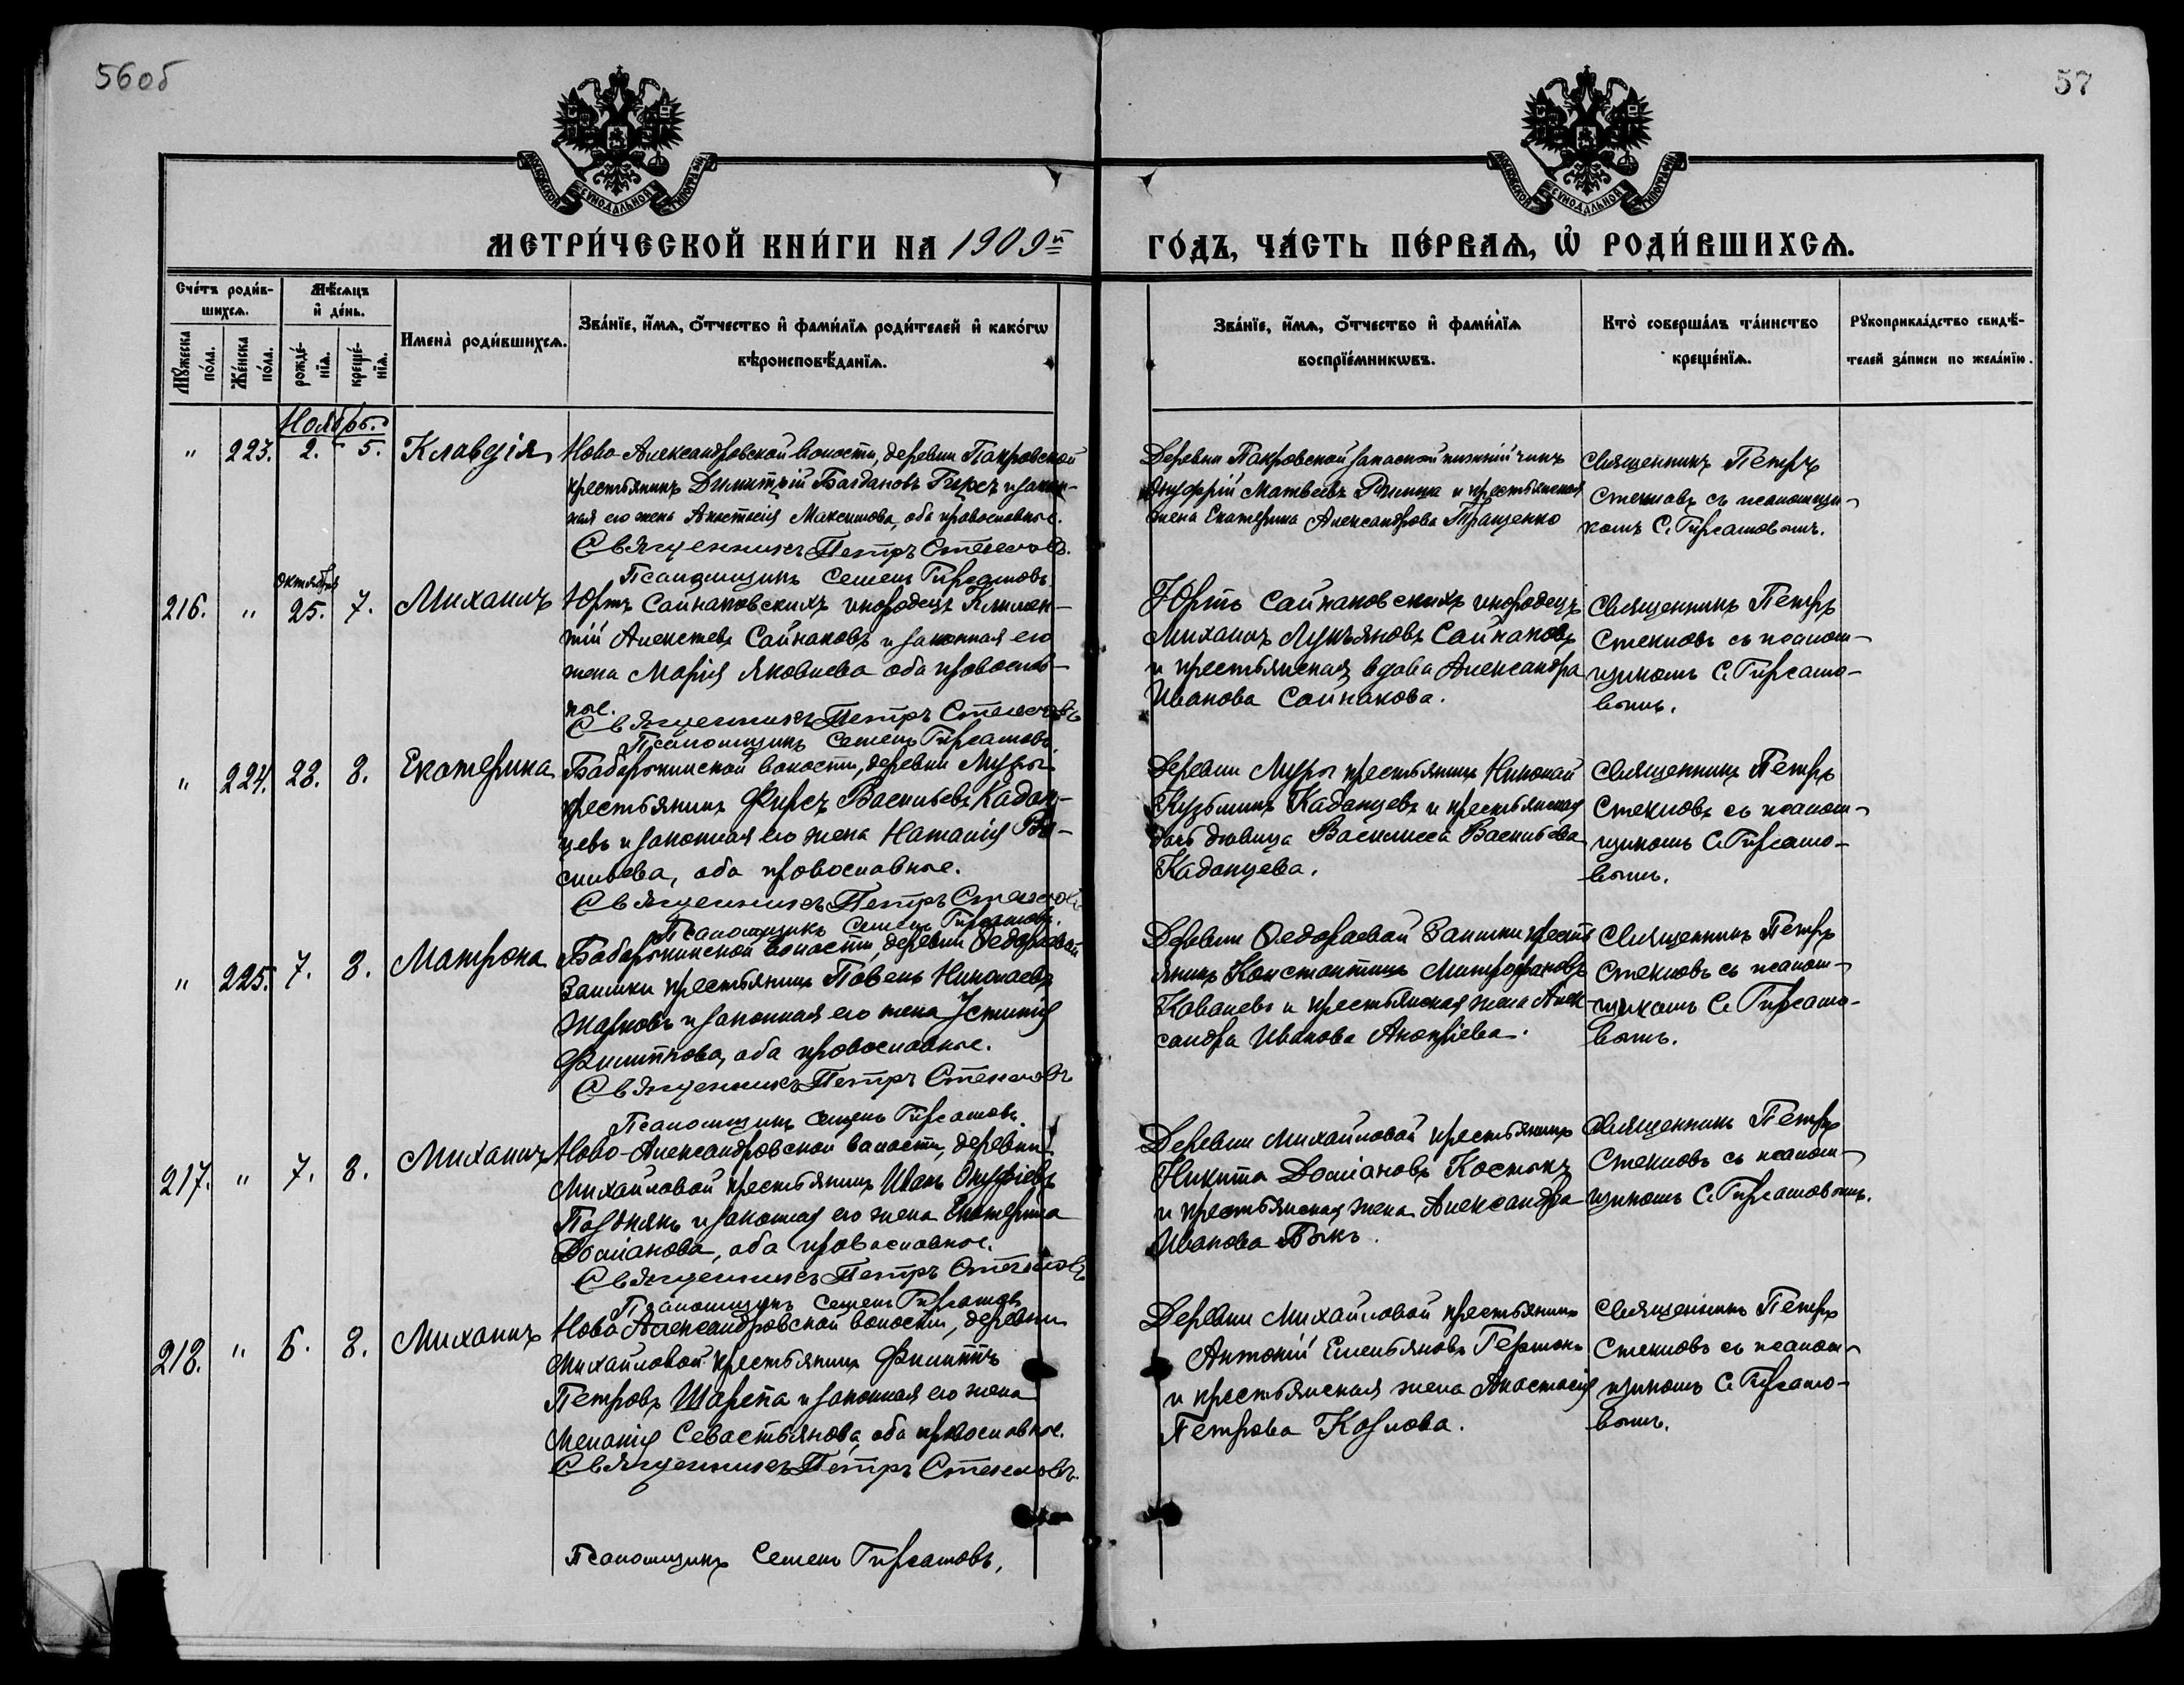 56об
57
МОСКОВСКОЙ СѴНОДАЛЬНОЙ ТИПОГРАФІИ
МОСКОВСКОЙ СѴНОДАЛЬНОЙ ТИПОГРАФІИ
МЕТРИ́ЧЕСКОЙ КНИ́ГИ НА 1909й
ГО́ДЪ, ЧА́СТЬ ПЕ́РВАѦ, Ѡ҆ РОДИ́ВШИХСѦ.
Сче́тъ роди́в-
шихсѧ.
Мꙋ́жеска
по́ла.
Же́нска
по́ла.
Мѣ́сяцъ
и҆ де́нь.
рожде́-
нїѧ.
креще́-
нїѧ.
Имена̀ роди́вшихсѧ.
Зва́нїе, и҆́мѧ, ѻ҆́тчество и҆ фами́лїѧ роди́телей и҆ како́гѡ
вѣроисповѣ́данїѧ.
Зва́нїе, и҆́мѧ, ѻ҆́тчество и҆ фами́лїѧ
воспрїе́мникѡвъ.
Кто̀ соверша́лъ та́инство
креще́нїѧ.
Рꙋкоприкла́дство свидѣ́-
телей за́писи по жела́нїю.
Ноябрь.
" 223. 2. 5. Клавдія
Ново-Александровской волости, деревни Покровской
крестьянинъ Димитрій Богдановъ Гирсъ и закон-
ная его жена Анастасія Максимова, оба православные.
Священникъ Петръ Стекловъ.
Псаломщикъ Семенъ Гирсамовъ
Деревни Покровской запасной нижній чинъ
Онуфрій Матвеевъ и крестьянская
жена Екатерина Александрова Пращенко
Священникъ Петръ
Стекловъ съ псаломщи-
комъ С. Гирсамовымъ.
Октября
216. " 25. 7. Михаилъ
Юртъ Сайнаковскихъ инородецъ Климен-
тій Алексѣевъ Сайнаковъ и законная его
жена Марія Яковлева оба православ-
ные.
Священникъ Петръ Стекловъ
Псаломщикъ Семенъ Гирсамовъ
Юртъ Сайнаковскихъ инородецъ
Михаилъ Лукьяновъ Сайнаковъ
и крестьянская вдова Александра
Иванова Сайнакова.
Священникъ Петръ
Стекловъ съ псалом-
щикомъ С. Гирсамо-
вымъ.
" 224. 28. 8. Екатерина
Бабарыкинской волости, деревни Муры
крестьянинъ Фирсъ Васильевъ Кадан-
цевъ и законная его жена Наталія Ва-
сильева, оба православные.
Священникъ Петръ Стекловъ
Псаломщикъ Семенъ Гирсамовъ.
Деревни Муры крестьянинъ Николай
Кузьминъ Каданцевъ и крестьянская
дочь дѣвица Василисса Васильева
Каданцева.
Священникъ Петръ
Стекловъ съ псалом-
щикомъ С. Гирсамо-
вымъ.
" 225. 7. 8. Матрона
Бабарыкинской волости, деревни Федораевой
Заимки крестьянинъ Павелъ Николаевъ
Жарковъ и законная его жена Устинія
Филиппова, оба православные.
Священникъ Петръ Стекловъ
Псаломщикъ Семенъ Гирсамовъ.
Деревни Федораевой Заимки кресть
янинъ Константинъ Митрофановъ
Ковалевъ и крестьянская жена Алек
сандра Иванова
Священникъ Петръ
Стекловъ съ псалом-
щикомъ С. Гирсамо-
вымъ.
217. " 7. 8. Михаилъ
Ново-Александровской волости, деревни
Михайловой крестьянинъ Иванъ Онуфріевъ
Позднякъ и законная его жена Екатерина
Доміанова, оба православные.
Священникъ Петръ Стекловъ
Псаломщикъ Семенъ Гирсамовъ
Деревни Михайловой крестьянинъ
Никита Доміановъ Костыкъ
и крестьянская жена Александра
Иванова Быкъ.
Священникъ Петръ
Стекловъ съ псалом-
щикомъ С. Гирсамовымъ.
218. " 6. 8. Михаилъ
Ново Александровской волости, деревни
Михайловой крестьянинъ Филиппъ
Петровъ Шарепа и законная его жена
Меланія Севастьянова, оба православные.
Священникъ Петръ Стекловъ.
Псаломщикъ Семенъ Гирсамовъ,
Деревни Михайловой крестьянинъ
Антоній Емельяновъ
и крестьянская жена Анастасія
Петрова Козлова.
Священникъ Петръ
Стекловъ съ псалом-
щикомъ С. Гирсамо-
вымъ.